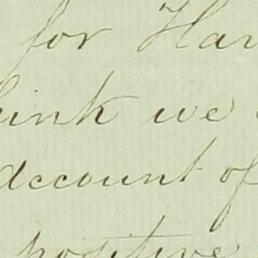 for Har
ink we
account of
positive